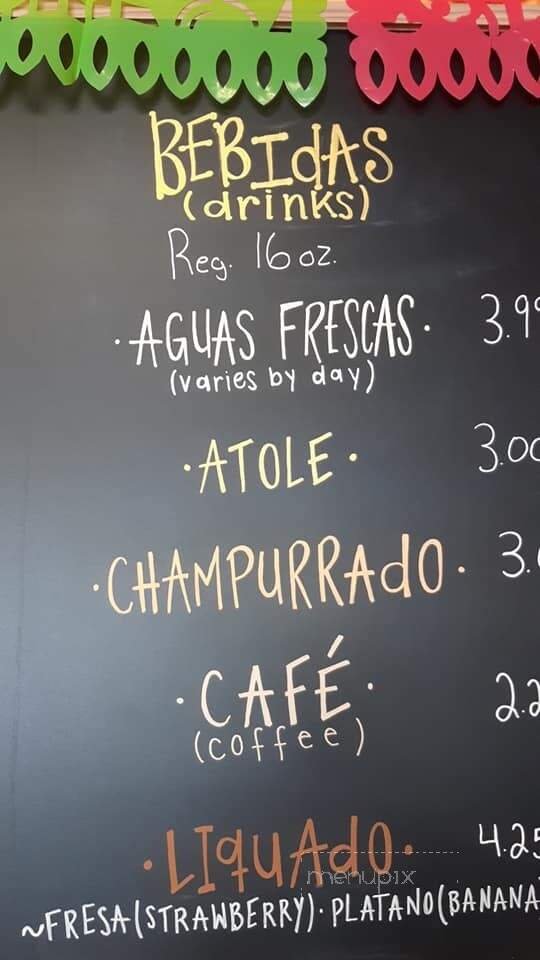 BEBIdAS
(drinks)
Reg. 16 oz.
·AGUAS FRESCAS· 3.99
(varies by day)
·ATOLE· 3.00
·CHAMPURRAdO· 3.
·CAFÉ· 2.2
(coffee)
·LIquAdO· 4.25
menupix
~FRESA(STRAWBERRY)·PLATANO(BANANA